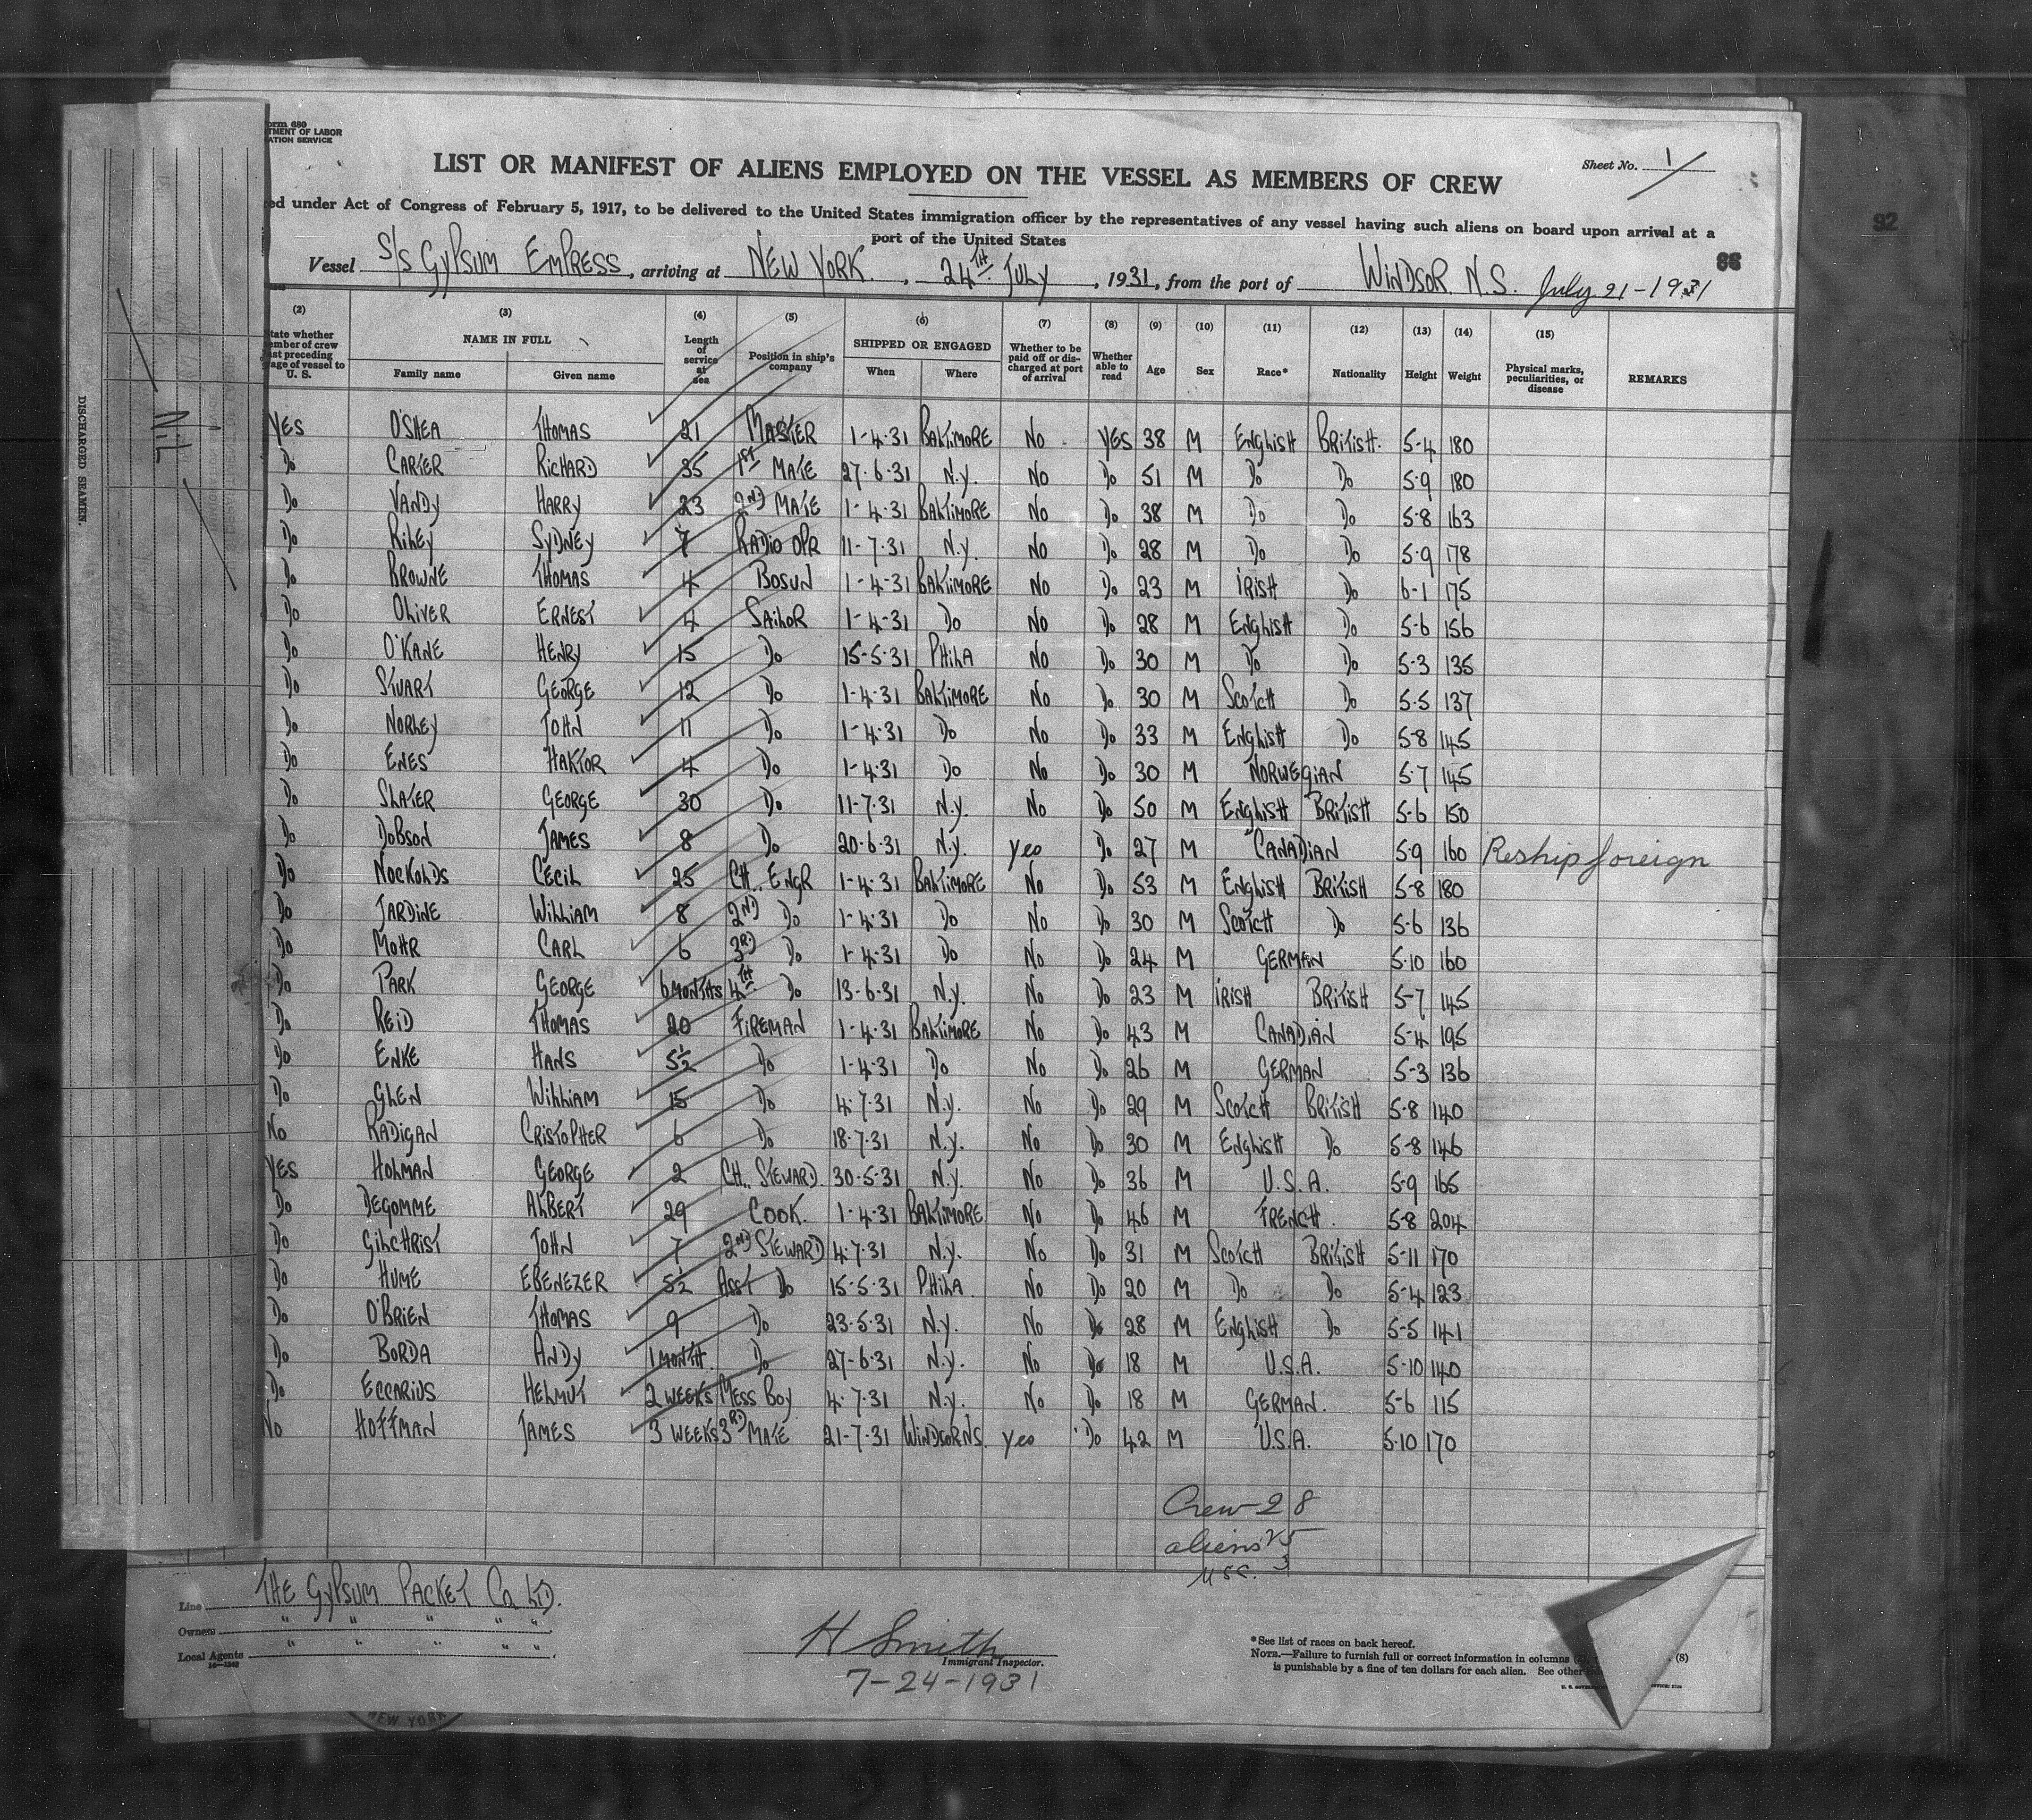 orm 680
TMENT OF LABOR
ATION SERVICE
Sheet No. 1
LIST OR MANIFEST OF ALIENS EMPLOYED ON THE VESSEL AS MEMBERS OF CREW
ed under Act of Congress of February 5, 1917, to be delivered to the United States immigration officer by the representatives of any vessel having such aliens on board upon arrival at a
port of the United States
92
Vessel S/S GYPSUM EMPRESS, arriving at NEW YORK., 24TH JULY, 1931, from the port of WINDSOR. N.S. July 21-1931
(2) (3) (4) (5) (6) (7) (8) (9) (10) (11) (12) (13) (14) (15)
tate whether
mber of crew
ast preceding
yage of vessel to
U. S.
NAME IN FULL
Family name Given name
Length
of
service
at
sea
Position in ship's
company
SHIPPED OR ENGAGED
When Where
Whether to be
paid off or dis-
charged at port
of arrival
Whether
able to
read
Age Sex Race* Nationality Height Weight
Physical marks,
peculiarities, or
disease
REMARKS
YES O'SHEA THOMAS 21 MASTER 1-4-31 BALTIMORE NO YES 38 M ENGLISH BRITISH. 5-4 180
DO CARTER RICHARD 35 1ST MATE 27-6-31 N.Y. NO DO 51 M DO DO 5-9 180
DO VANDY HARRY 23 2ND MATE 1-4-31 BALTIMORE NO DO 38 M DO DO 5-8 163
DO RILEY SYDNEY 7 RADIO OPR 11-7-31 N.Y. NO DO 28 M DO DO 5-9 178
DO BROWNE THOMAS 4 BOSUN 1-4-31 BALTIMORE NO DO 23 M IRISH DO 6-1 175
DO OLIVER ERNEST 4 SAILOR 1-4-31 DO NO DO 28 M ENGLISH DO 5-6 156
DO O'KANE HENRY 15 DO 15-5-31 PHILA NO DO 30 M DO DO 5-3 135
DO STUART GEORGE 12 DO 1-4-31 BALTIMORE NO DO 30 M SCOTCH DO 5-5 137
DO NORLEY JOHN 11 DO 1-4-31 DO NO DO 33 M ENGLISH DO 5-8 145
DO ENES HAKTOR 4 DO 1-4-31 DO NO DO 30 M NORWEGIAN 5-7 145
DO SLATER GEORGE 30 DO 11-7-31 N.Y. NO DO 50 M ENGLISH BRITISH 5-6 150
DO DOBSON JAMES 8 DO 20-6-31 N.Y. yes DO 27 M CANADIAN 5-9 160 Reship foreign
DO NOCKOLDS CECIL 25 CH.. ENGR 1-4-31 BALTIMORE NO DO 53 M ENGLISH BRITISH 5-8 180
DO JARDINE WILLIAM 8 2ND DO 1-4-31 DO NO DO 30 M SCOTCH DO 5-6 136
DO MOHR CARL 6 3RD DO 1-4-31 DO NO DO 24 M GERMAN 5-10 160
DO PARK GEORGE 6 MONTHS 4TH DO 13-6-31 N.Y. NO DO 23 M IRISH BRITISH 5-7 145
DO REID THOMAS 20 FIREMAN 1-4-31 BALTIMORE NO DO 43 M CANADIAN 5-4 195
DO ENKE HANS 5½ DO 1-4-31 DO NO DO 26 M GERMAN 5-3 136
DO GLEN WILLIAM 15 DO 4-7-31 N.Y. NO DO 29 M SCOTCH BRITISH 5-8 140
NO RADIGAN CRISTOPHER 6 DO 18-7-31 N.Y. NO DO 30 M ENGLISH DO 5-8 146
YES HOLMAN GEORGE 2 CH.. STEWARD. 30-5-31 N.Y. NO DO 36 M U.S.A. 5-9 165
DO DEGOMME ALBERT 29 COOK. 1-4-31 BALTIMORE NO DO 46 M FRENCH. 5-8 204
DO GILCHRIST JOHN 7 2ND STEWARD 4-7-31 N.Y. NO DO 31 M SCOTCH BRITISH 5-11 170
DO HUME EBENEZER 5½ ASST DO 15-5-31 PHILA. NO DO 20 M DO DO 5-4 123
DO O'BRIEN THOMAS 9 DO 23-5-31 N.Y. NO DO 28 M ENGLISH DO 5-5 141
DO BORDA ANDY 1 MONTH. DO 27-6-31 N.Y. NO DO 18 M U.S.A. 5-10 140
DO ECCARIUS HELMUT 2 WEEKS MESS BOY 4-7-31 N.Y. NO DO 18 M GERMAN. 5-6 115
NO HOFFMAN JAMES 3 WEEKS 3RD MATE 21-7-31 WINDSOR NS. yes DO 42 M U.S.A. 5-10 170
Crew-28
aliens 25
usc. 3
DISCHARGED SEAMEN.
NIL
Line THE GYPSUM PACKET CO. LTD.
Owners " " " " "
Local Agents " " " " "
H Smith
Immigrant Inspector.
7-24-1931
*See list of races on back hereof.
NOTE.—Failure to furnish full or correct information in columns (8)
is punishable by a fine of ten dollars for each alien. See other
NEW YORK